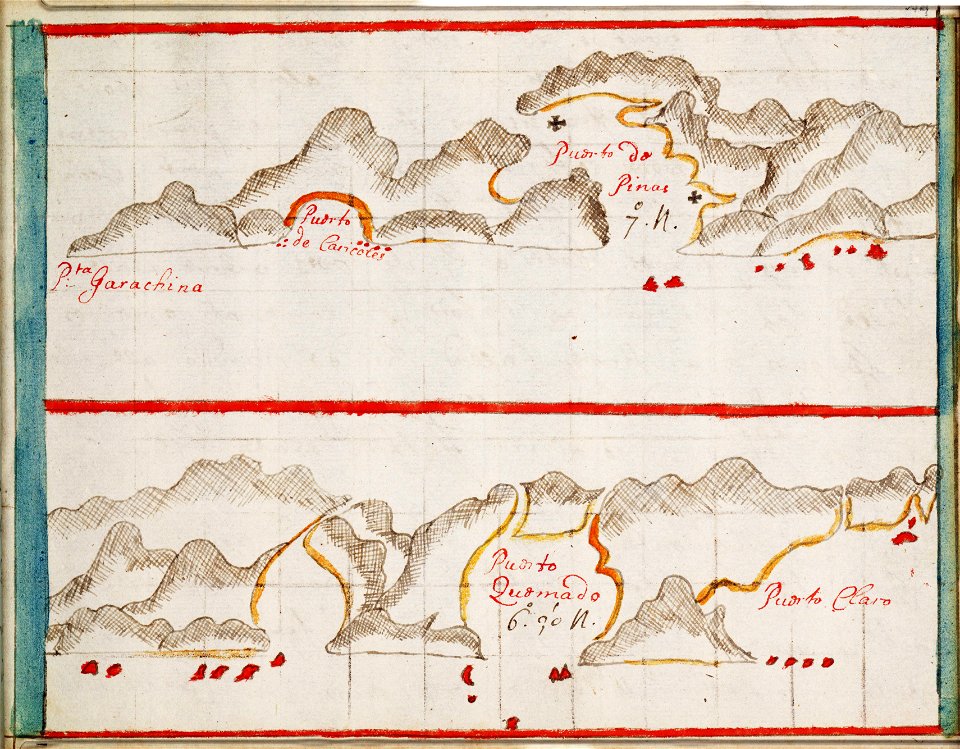 Puerto de
Pinas
7.° N.
Puerto
de Caricoles
P.ta Garachina
Puerto
Quemado
Puerto Claro